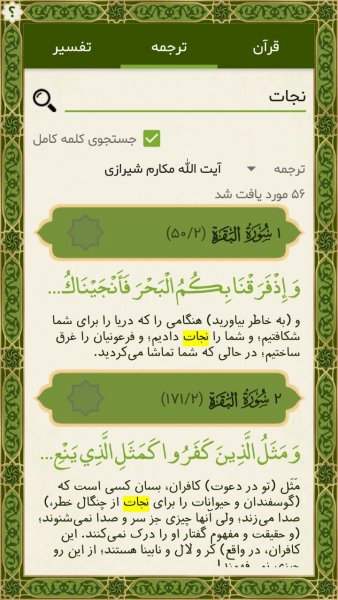 ؟
قرآن ترجمه تفسیر
نجات
جستجوی کلمه کامل
ترجمه آیت الله مکارم شیرازی
۵۶ مورد یافت شد
۱ سُورَةُ البَقَرَة (۵۰/۲)
وَإِذْ فَرَقْنَا بِكُمُ الْبَحْرَ فَأَنْجَيْنَاكُ...
و (به خاطر بیاورید) هنگامی را که دریا را برای شما
شکافتیم؛ و شما را نجات دادیم؛ و فرعونیان را غرق
ساختیم؛ در حالی که شما تماشا می‌کردید.
۲ سُورَةُ البَقَرَة (۱۷۱/۲)
وَمَثَلُ الَّذِينَ كَفَرُوا كَمَثَلِ الَّذِي يَنْعِ...
مَثَل (تو در دعوت) کافران، بسان کسی است که
(گوسفندان و حیوانات را برای نجات از چنگال خطر،)
صدا می‌زند؛ ولی آنها چیزی جز سر و صدا نمی‌شنوند؛
(و حقیقت و مفهوم گفتار او را درک نمی‌کنند. این
کافران، در واقع) کر و لال و نابینا هستند؛ از این رو